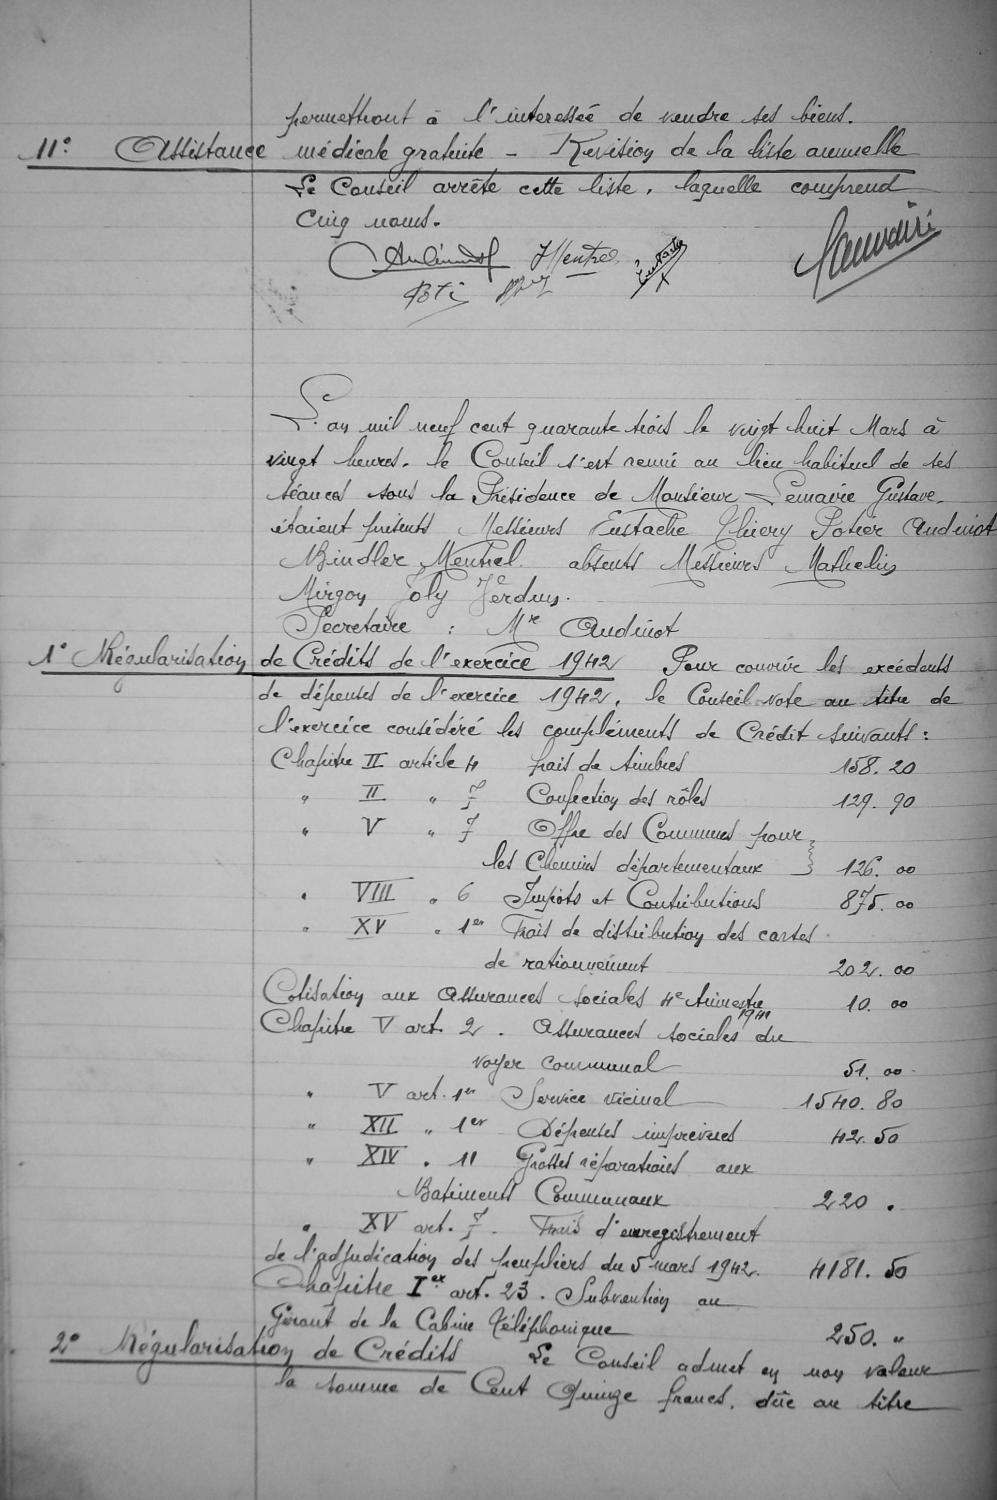 permettront à l'interessée de vendre ses biens.
11° Assistance médicale gratuite - Revision de la liste annuelle
Le Conseil arrête cette liste, laquelle comprend
cinq noms.
Audinot Mentrel Eustache Lemaire
L'an mil neuf cent quarante trois le vingt huit Mars à
vingt heures. le Conseil s'est reuni au lieu habituel de ses
séances sous la Présidence de Monsieur Lemaire Gustave.
étaient présents Messieurs Eustache Thiery Potier Audinot
Bindler Mentrel. absents Messieurs Mathelin
Mirgon Joly Verdun.
Secretaire : Mr Audinot
1° Régularisation de Crédits de l'exercice 1942 Pour couvrir les excédents
de dépenses de l'exercice 1942, le Conseil vote au titre de
l'exercice considéré les compléments de Crédit suivants :
Chapitre II article 4 frais de timbres 158.20
" II " 7 Confection des rôles 129.90
" V " 7 Offre des Communes pour
les Chemins départementaux } 126.00
" VIII " 6 Impots et Contributions 875.00
" XV " 1er Frais de distribution des cartes
de rationnement 202.00
Cotisation aux Assurances Sociales 4e trimestre 10.00
1941
Chapitre V art. 2. Assurances sociales du
voyer communal 51.00
" V art. 1er Service vicinal 1540.80
" XII " 1er Dépenses imprévues 42.50
" XIV " 11 Grosses réparations aux
Batiments Communaux 220 "
" XV art. 7. Frais d'enregistrement
de l'adjudication des peupliers du 5 mars 1942. 4181.50
Chapitre Ier art. 23. Subvention au
Gérant de la Cabine téléphonique 250. "
2° Régularisation de Crédits Le Conseil admet en non valeur
la somme de Cent Quinze francs, dûe au titre